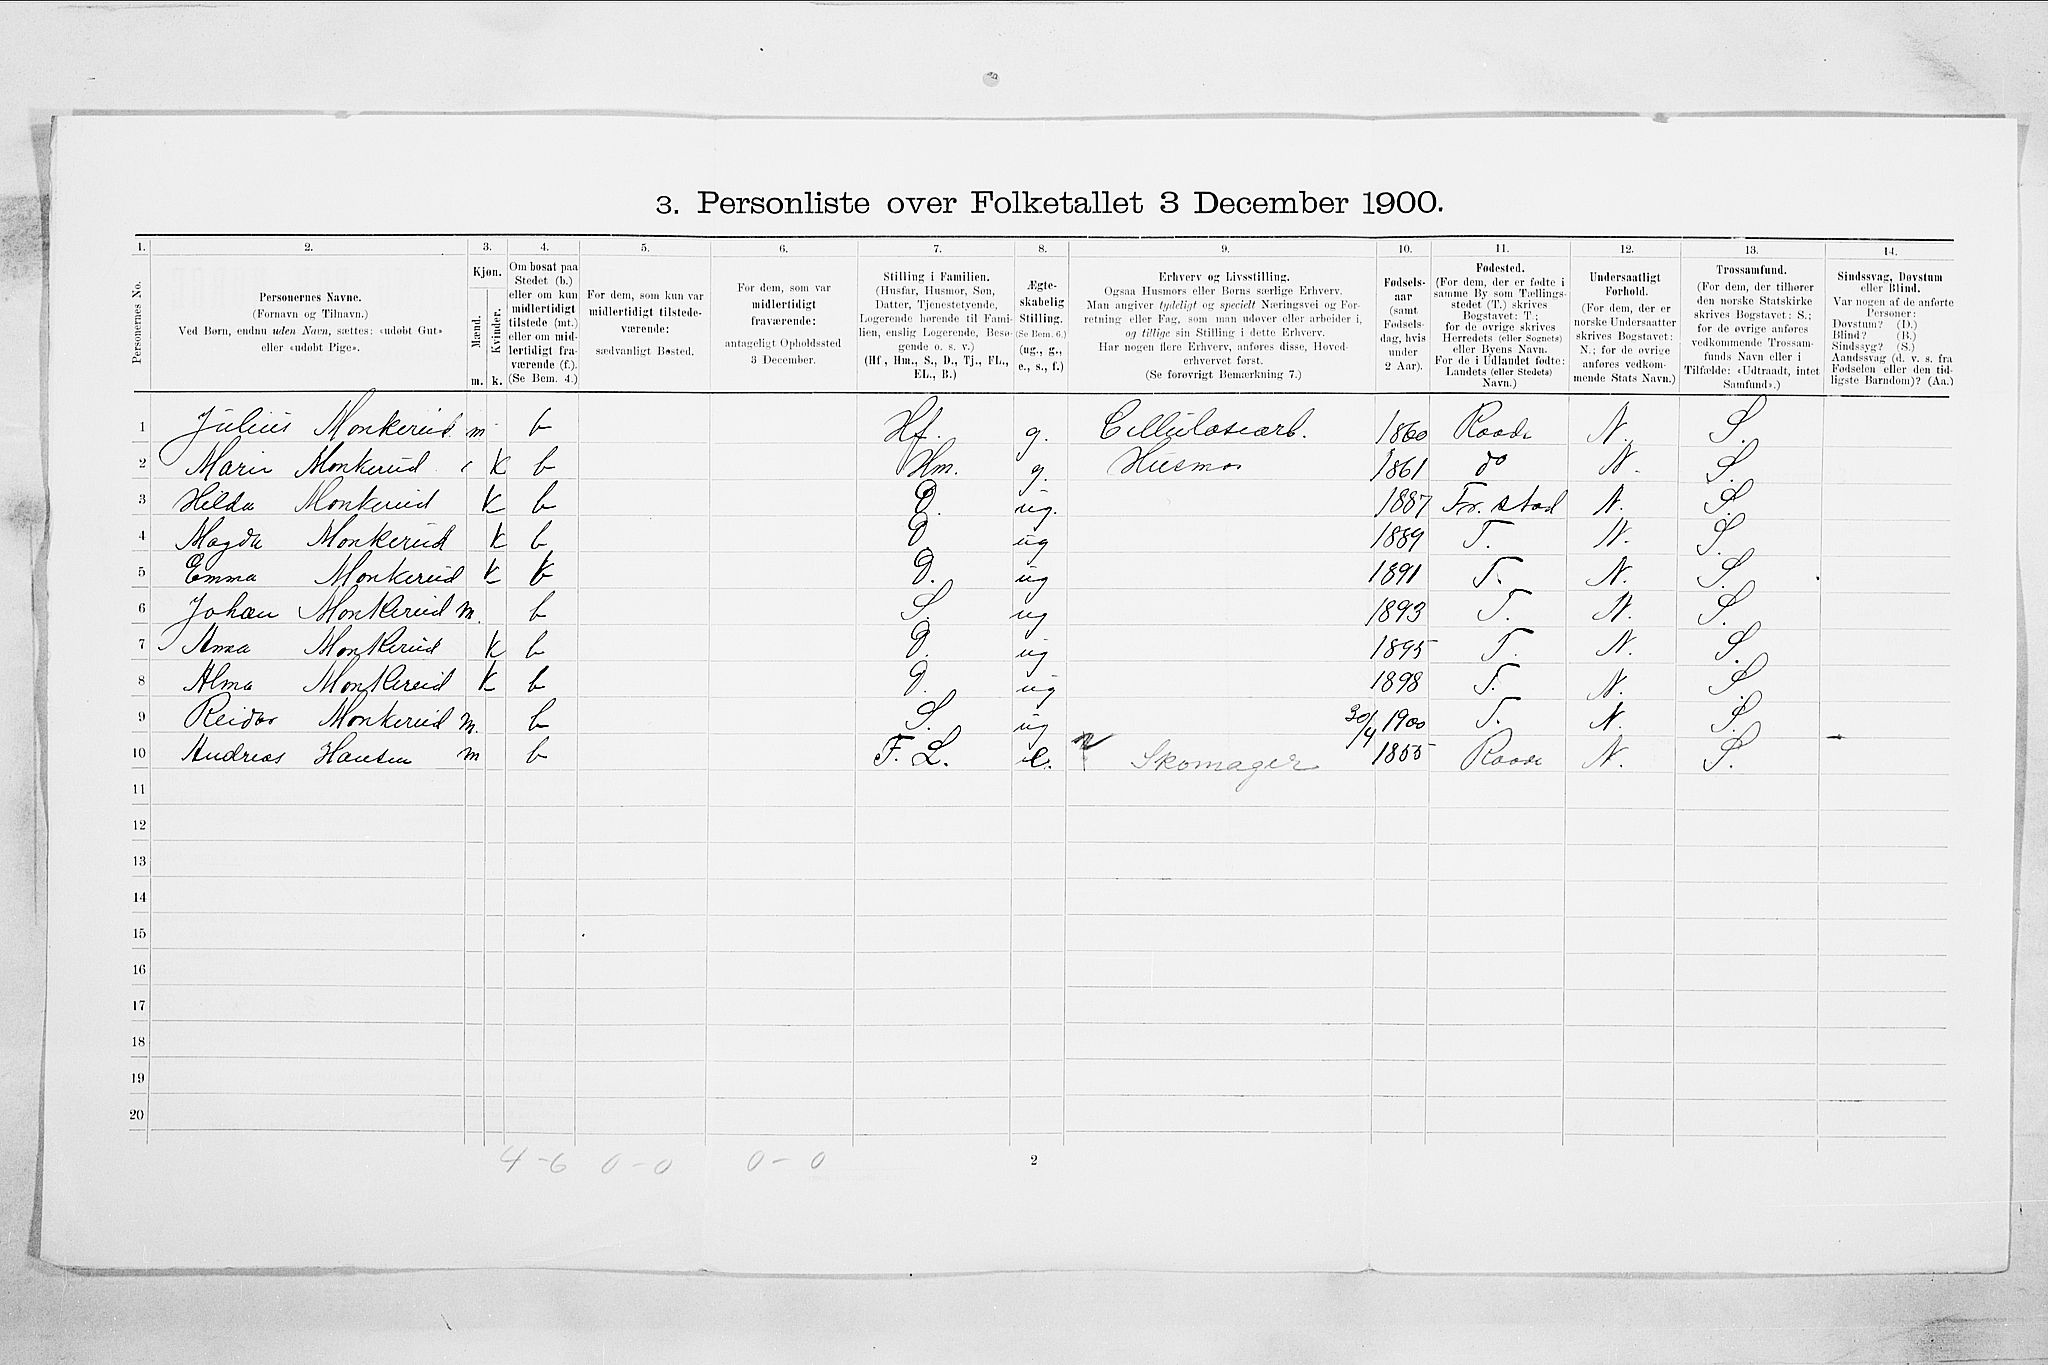 3. Personliste over Folketallet 3 December 1900.
1. 2. 3. 4. 5. 6. 7. 8. 9. 10. 11. 12. 13. 14.
Personernes No.
Personernes Navne.
(Fornavn og Tilnavn.)
Ved Børn, endnu uden Navn, sættes: «udøbt Gut»
eller «udøbt Pige».
Kjøn.
Mænd.
Kvinder.
m. k.
Om bosat paa
Stedet (b.)
eller om kun
midlertidigt
tilstede (mt.)
eller om mid-
lertidigt fra-
værende (f.).
(Se Bem. 4.)
For dem, som kun var
midlertidigt tilstede-
værende:
sædvanligt Bosted.
For dem, som var
midlertidigt
fraværende:
antageligt Opholdssted
3 December.
Stilling i Familien.
(Husfar, Husmor, Søn,
Datter, Tjenestetyende,
Logerende hørende til Fami-
lien, enslig Logerende, Besø-
gende o. s. v.)
(Hf., Hm., S., D., Tj., FL.,
EL., B.)
Ægte-
skabelig
Stilling.
(Se Bem. 6.)
(ug., g.,
e., s., f.)
Erhverv og Livsstilling.
Ogsaa Husmors eller Børns særlige Erhverv.
Man angiver tydeligt og specielt Næringsvei og For-
retning eller Fag, som man udøver eller arbeider i,
og tillige sin Stilling i dette Erhverv.
Har nogen flere Erhverv, anføres disse, Hoved-
erhvervet først.
(Se forøvrigt Bemærkning 7.)
Fødsels-
aar
(samt
Fødsels-
dag, hvis
under
2 Aar).
Fødested.
(For dem, der er fødte i
samme By som Tællings-
stedet (T.) skrives
Bogstavet: T.;
for de øvrige skrives
Herredets (eller Sognets)
eller Byens Navn.
For de i Udlandet fødte:
Landets (eller Stedets)
Navn.)
Undersaatligt
Forhold.
(For dem, der er
norske Undersaatter
skrives Bogstavet:
N.; for de øvrige
anføres vedkom-
mende Stats Navn.)
Trossamfund.
(For dem, der tilhører
den norske Statskirke
skrives Bogstavet: S.;
for de øvrige anføres
vedkommende Trossam-
funds Navn eller i
Tilfælde: «Udtraadt, intet
Samfund».)
Sindssvag, Døvstum
eller Blind.
Var nogen af de anførte
Personer:
Døvstum? (D.)
Blind? (B.)
Sindssyg? (S.)
Aandssvag (d. v. s. fra
Fødselen eller den tid-
ligste Barndom)? (Aa.)
1 Julius Monkerud. m b Hf. g. Cellulosearb. 1860 Raade N. S.
2 Marie Monkerud k b Hm. g. Husmor 1861 do N. S.
3 Hilda Monkerud k b D. ug. 1887 Fr. stad N. S.
4 Magda Monkerud k b D ug 1889 T. N. S.
5 Emma Monkerud k b D. ug 1891 T. N. S.
6 Johan Monkerud m. b S. ug 1893 T. N. S.
7 Anna Monkerud k b D. ug 1895 T. N. S.
8 Alma Monkerud k b D. ug 1898 T. N. S.
9 Reidar Monkerud m. b S. ug 30/4 1900 T. N. S.
10 Andreas Hansen m b F. L. e. Skomager 1855 Raade N. S.
11
12
13
14
15
16
17
18
19
20
4-6 0-0 0-0
2